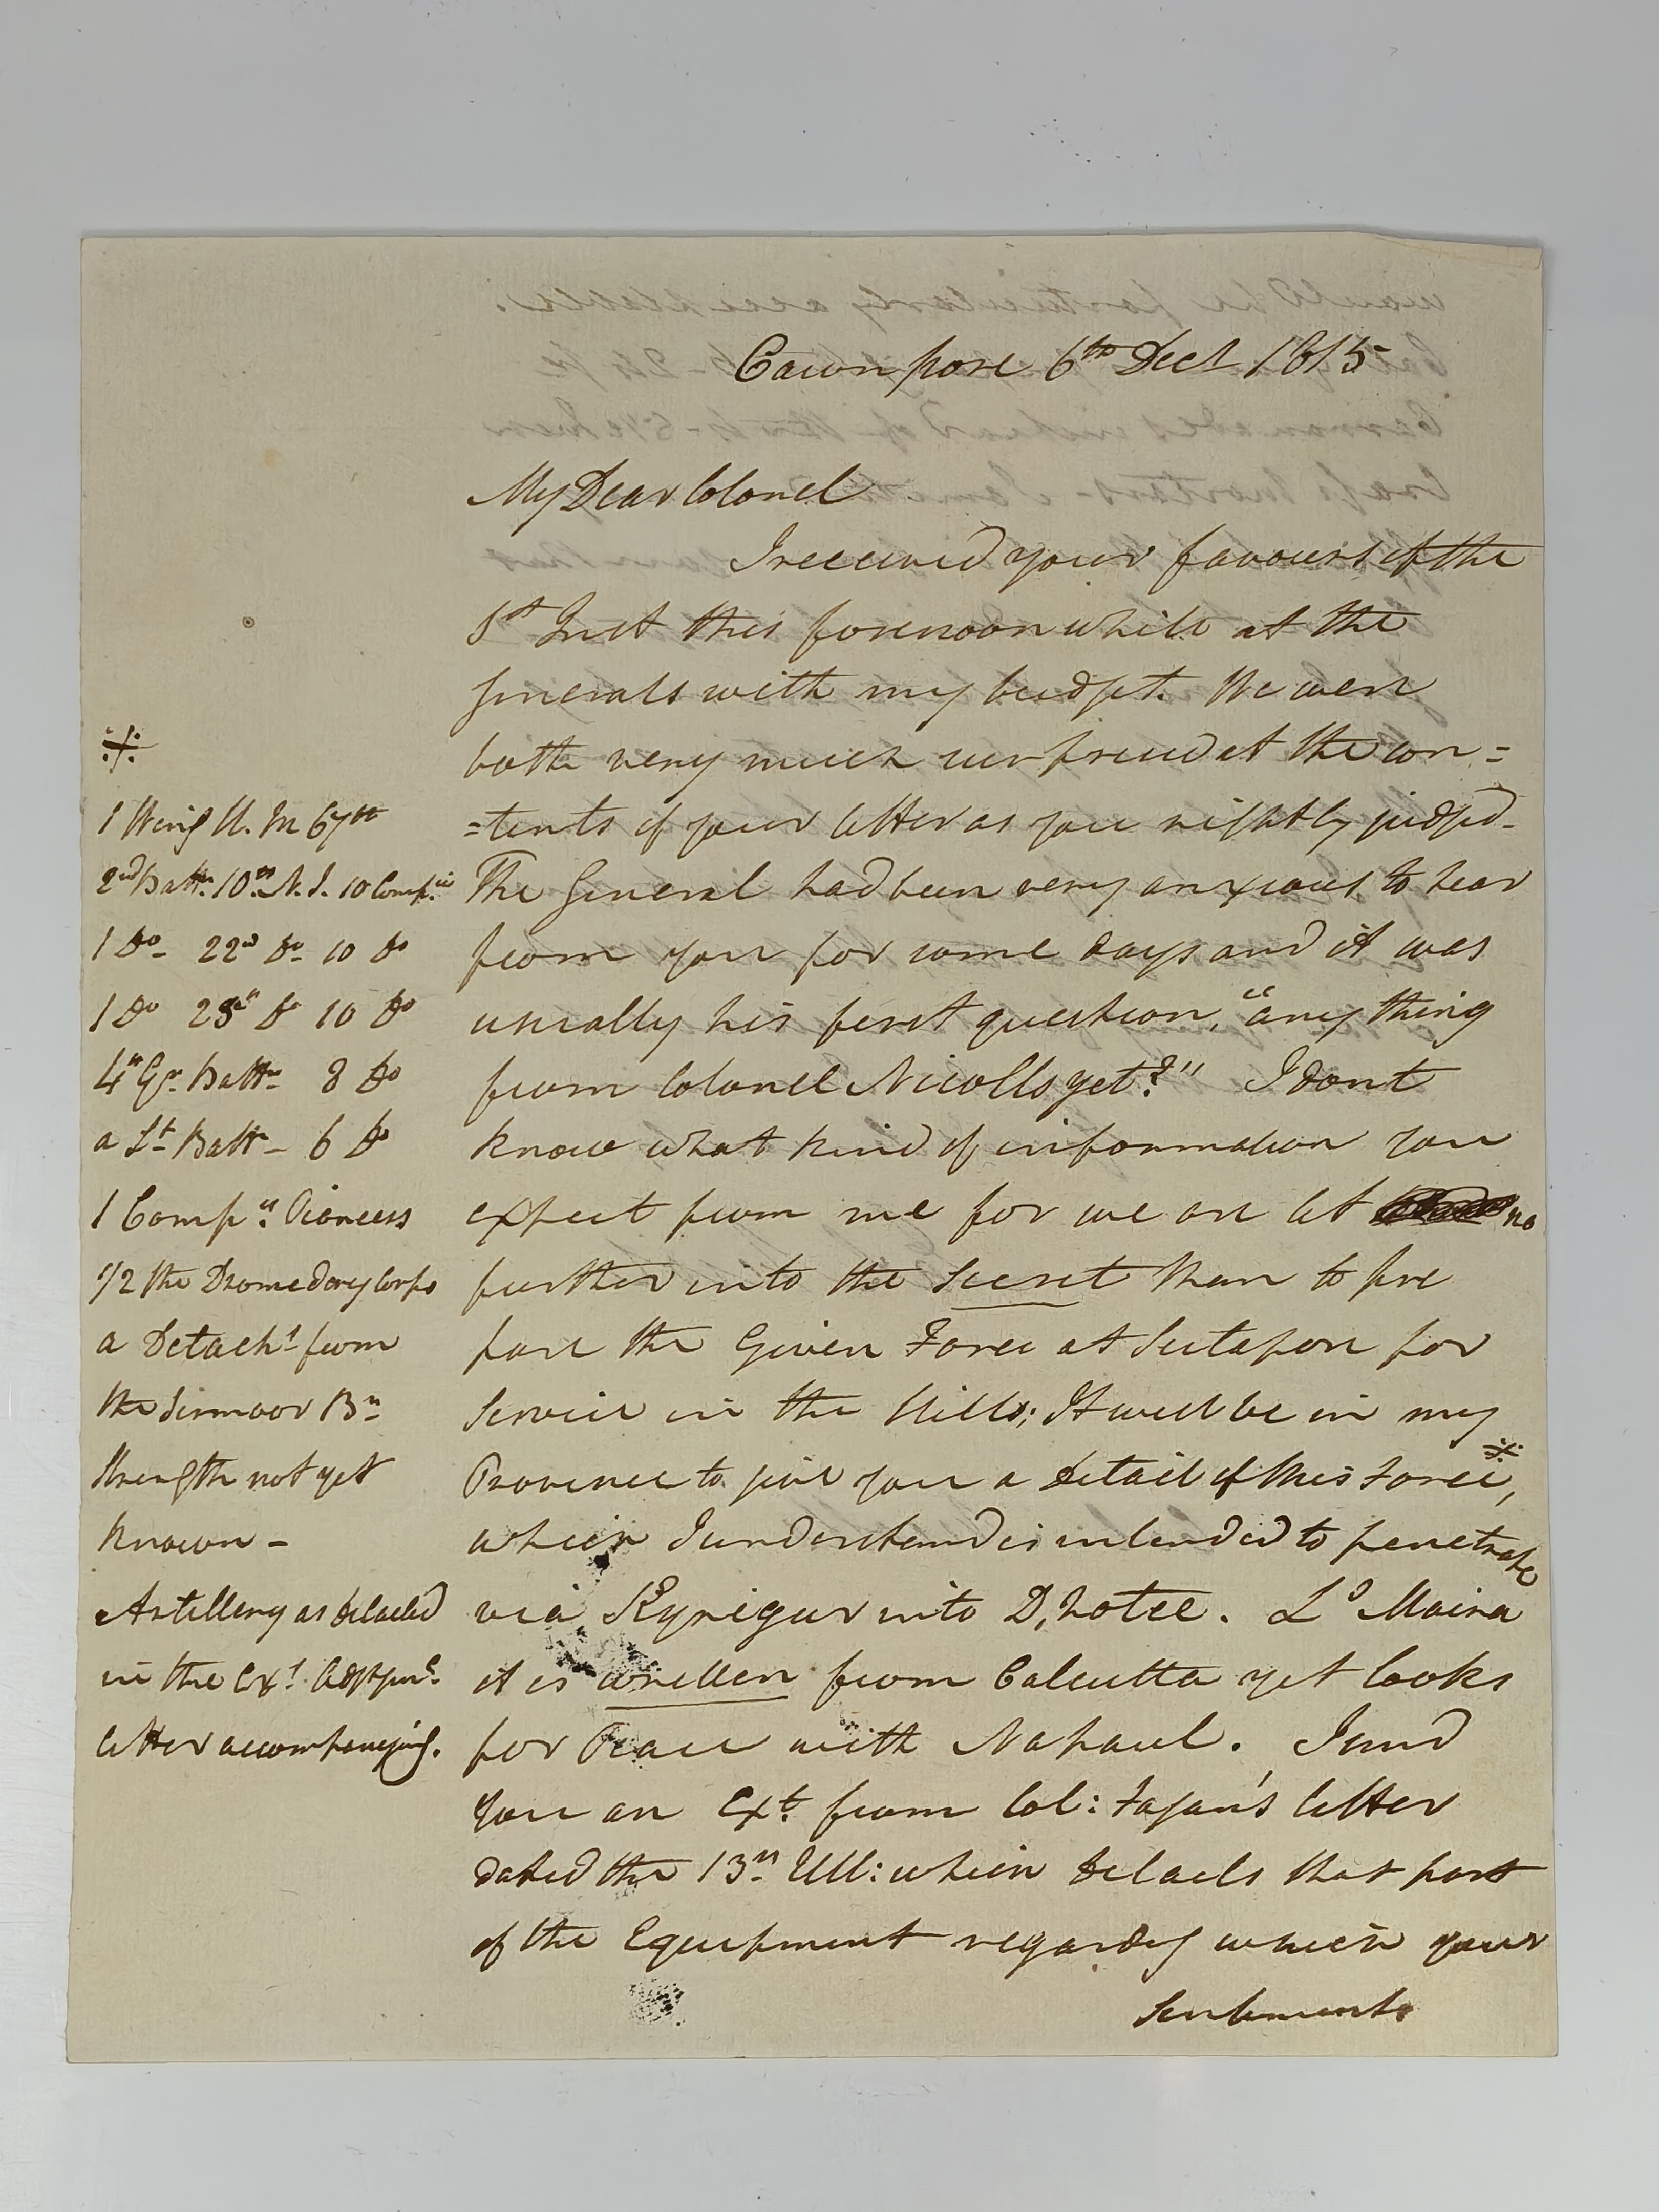 Cawnpore 6th Decr 1815
My Dear Colonel
I received your favours of the
1st Inst this forenoon while at the
Generals with my budget. We were
both very much surprised at the con=
=tents of your letter as you rightly judged -
The General had been very anxious to hear
from you for some days and it was
usually his first question, "any thing
from Colonel Nicolls yet?" I dont
know what kind of information you
expect from me for we are let no
further into the Secret than to pre
pare the Given Force at Seetapore for
Service in the Hills; It will be in my
Province to give you a detail of this Force ※,
which I understand is intended to penetrate
via Ryrigur into D,hotee. Ld Moira
it is written from Calcutta yet looks
for Peace with Napaul. I send
you an Ext. from Col: Fagan's letter
dated the 13th Ult: which details that part
of the Equipment regardg which your
Sentiments
※
1 Wing H. M 67th
2nd Battn. 10th N. I. 10 Compies
1 Do - 22d Do - 10 Do
1 Do 25th Do 10 Do
4th Gr. Battn 8 Do
a Lt Battn - 6 Do
1 Compy. Pioneers
1/2 the Dromedary Corps
a Detacht from
the Sirmoor Bn
Strength not yet
known -
Artillery as detailed
in the Ext. Adjt Genl.
letter accompanying.